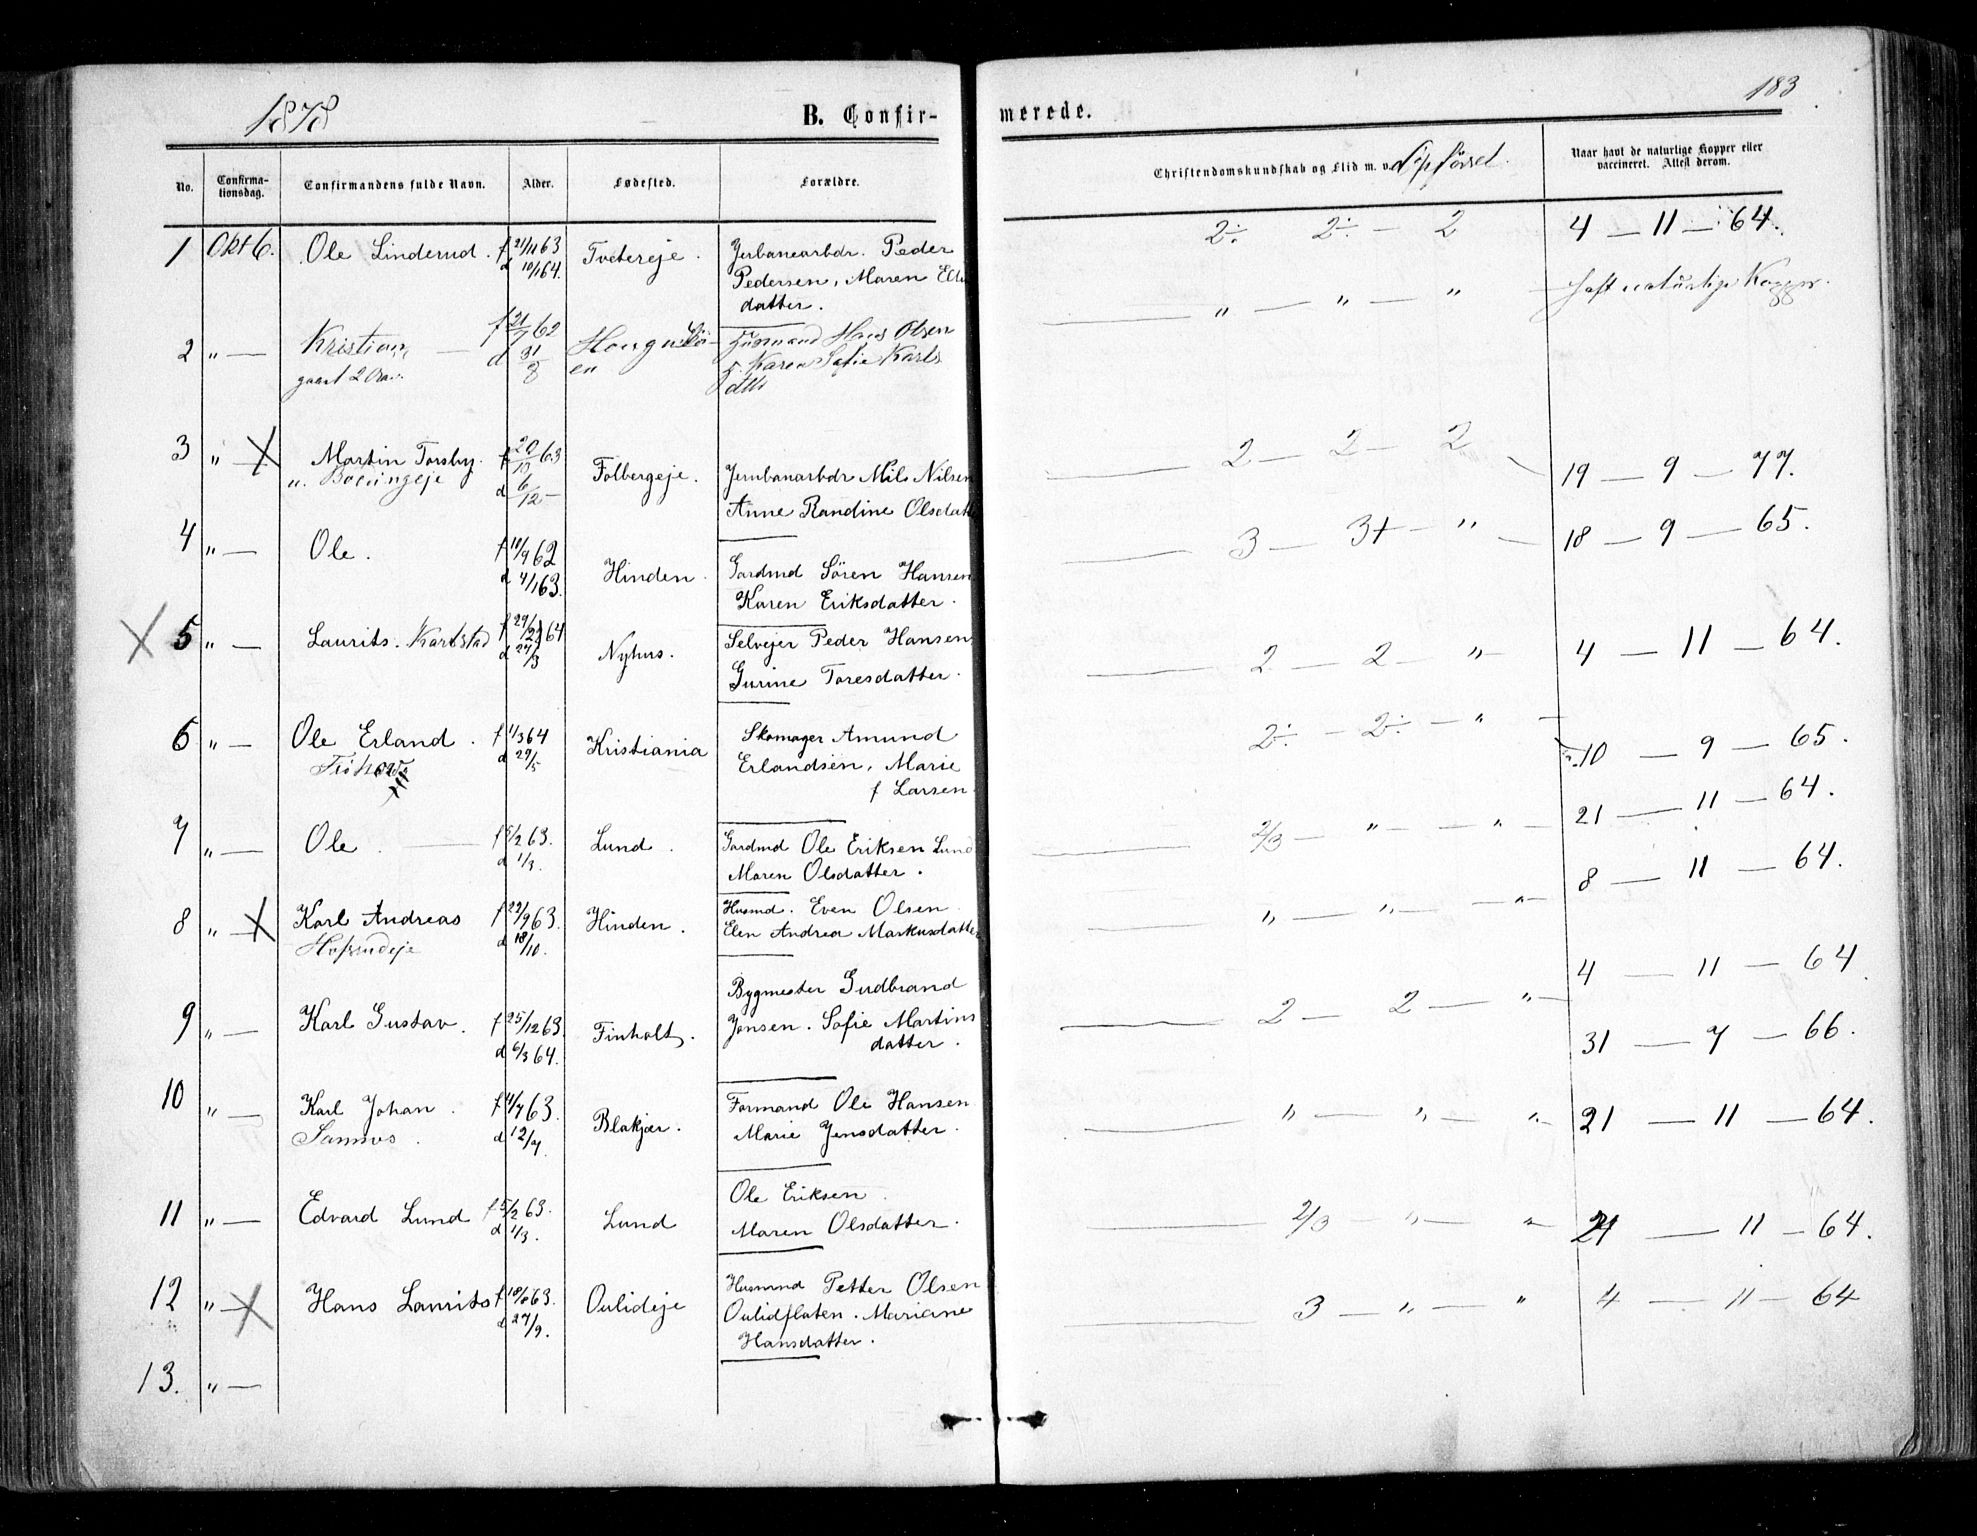 1878
B. Confir-
No. Confirma-tionsdag. Confirmandens fulde Navn. Alder. Fødested. Forældre.
1 Okt 6. Ole Linderud. f 21/11 63 Tvetereje. Jerbanearbdr. Peder
d 10/1 64. Pedersen, Maren
datter.
2 " — Kristian, f 21/7 62 Husmand Hans Olsen
gaaet 2 d 31/8 Karen Sofie Karls
3 " — X Martin Torsby. f 20/10 63 Folbergeje. Jernbanarbdr Nils Nilsen
d 6/12 — Anne Randine Olsdatt
4 " — Ole. f 10/9 62 Hinden. Gardmd Sören Hansen
d 4/1 63. Karen Eriksdatter.
X 5 " — Laurits. Karlstad f 29/2 64 Nyhus. Selvejer Peder Hansen
d 27/3 Gurine Toresdatter.
6 " — Ole Erland. f 1/3 64 Kristiania Skomager Amund
d 29/5 Erlandsen, Marie
f Larsen.
7 " — Ole. f 5/2 63. Lund. Gardmd Ole Eriksen Lund
d 1/3. Maren Olsdatter.
8 " — X Karl Andreas f 29/9 63. Hinden. Husmd. Even Olsen
d 18/10. Elen Andrea Markusdatter
9 " — Karl Gustav. f 25/12 63. Finholt. Bygmester Gudbrand
d 6/3 64. Jonsen. Sofie Martins
datter.
10 " — Karl Johan. f 4/7 63. Blakjær. Formand Ole Hansen
Sannes. d 12/7. Marie Jensdatter.
11 " — Edvard Lund f 5/2 63. Lund Ole Eriksen
d 1/3. Maren Olsdatter.
12 " — X Hans Laurits f 18/8 63. Oulideje Husmnd Petter Olsen
d 27/9. Oulidflaten. Mariane
Hansdatter.
13. " —
183
merede.
Christendomskundskab og Flid m. v. Opførsel. Naar havt de naturlige Kopper eller vaccineret. Attest derom.
2÷ 2÷ — 2 4 — 11 — 64.
" — " — " — haft naturlige Kopper.
2 — 2 — 2 19 — 9 — 77.
3 — 3+ — " — 18 — 9 — 65.
2 — 2 — " — 4 — 11 — 64.
2÷ — 2÷ — " — 10 — 9 — 65.
2/3 — " — " — 21 — 11 — 64.
" — " — " — 8 — 11 — 64.
4 — 11 — 64
2 — 2 — " — 31 — 7 — 66.
" — " — " 21 — 11 — 64.
2/3 — " — " 21 — 11 — 64.
3 — " — " 4 — 11 — 64